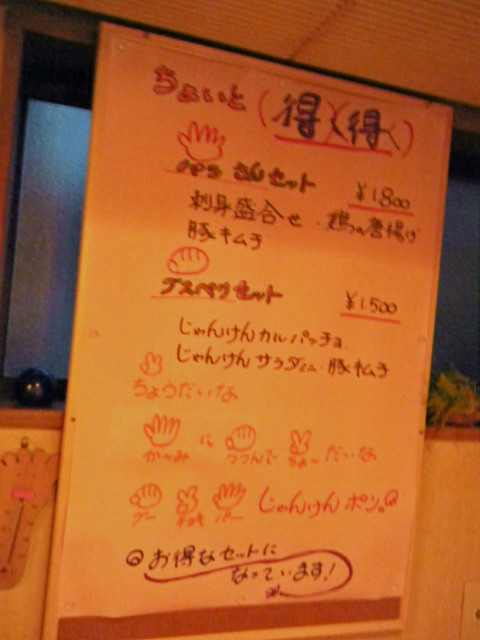 ちょいと(得く得く)
パラさんセット ¥1800
刺身盛合せ・鶏の唐揚げ
豚キムチ
アスペソセット ¥1.500
じゃんけんカルパッチョ、
じゃんけんサラダミニ・豚キムチ
ちょうだいな
かーみに つつんで ちょーだいな
グー チョキ パー じゃんけんポン。
お得なセットに
なっています!